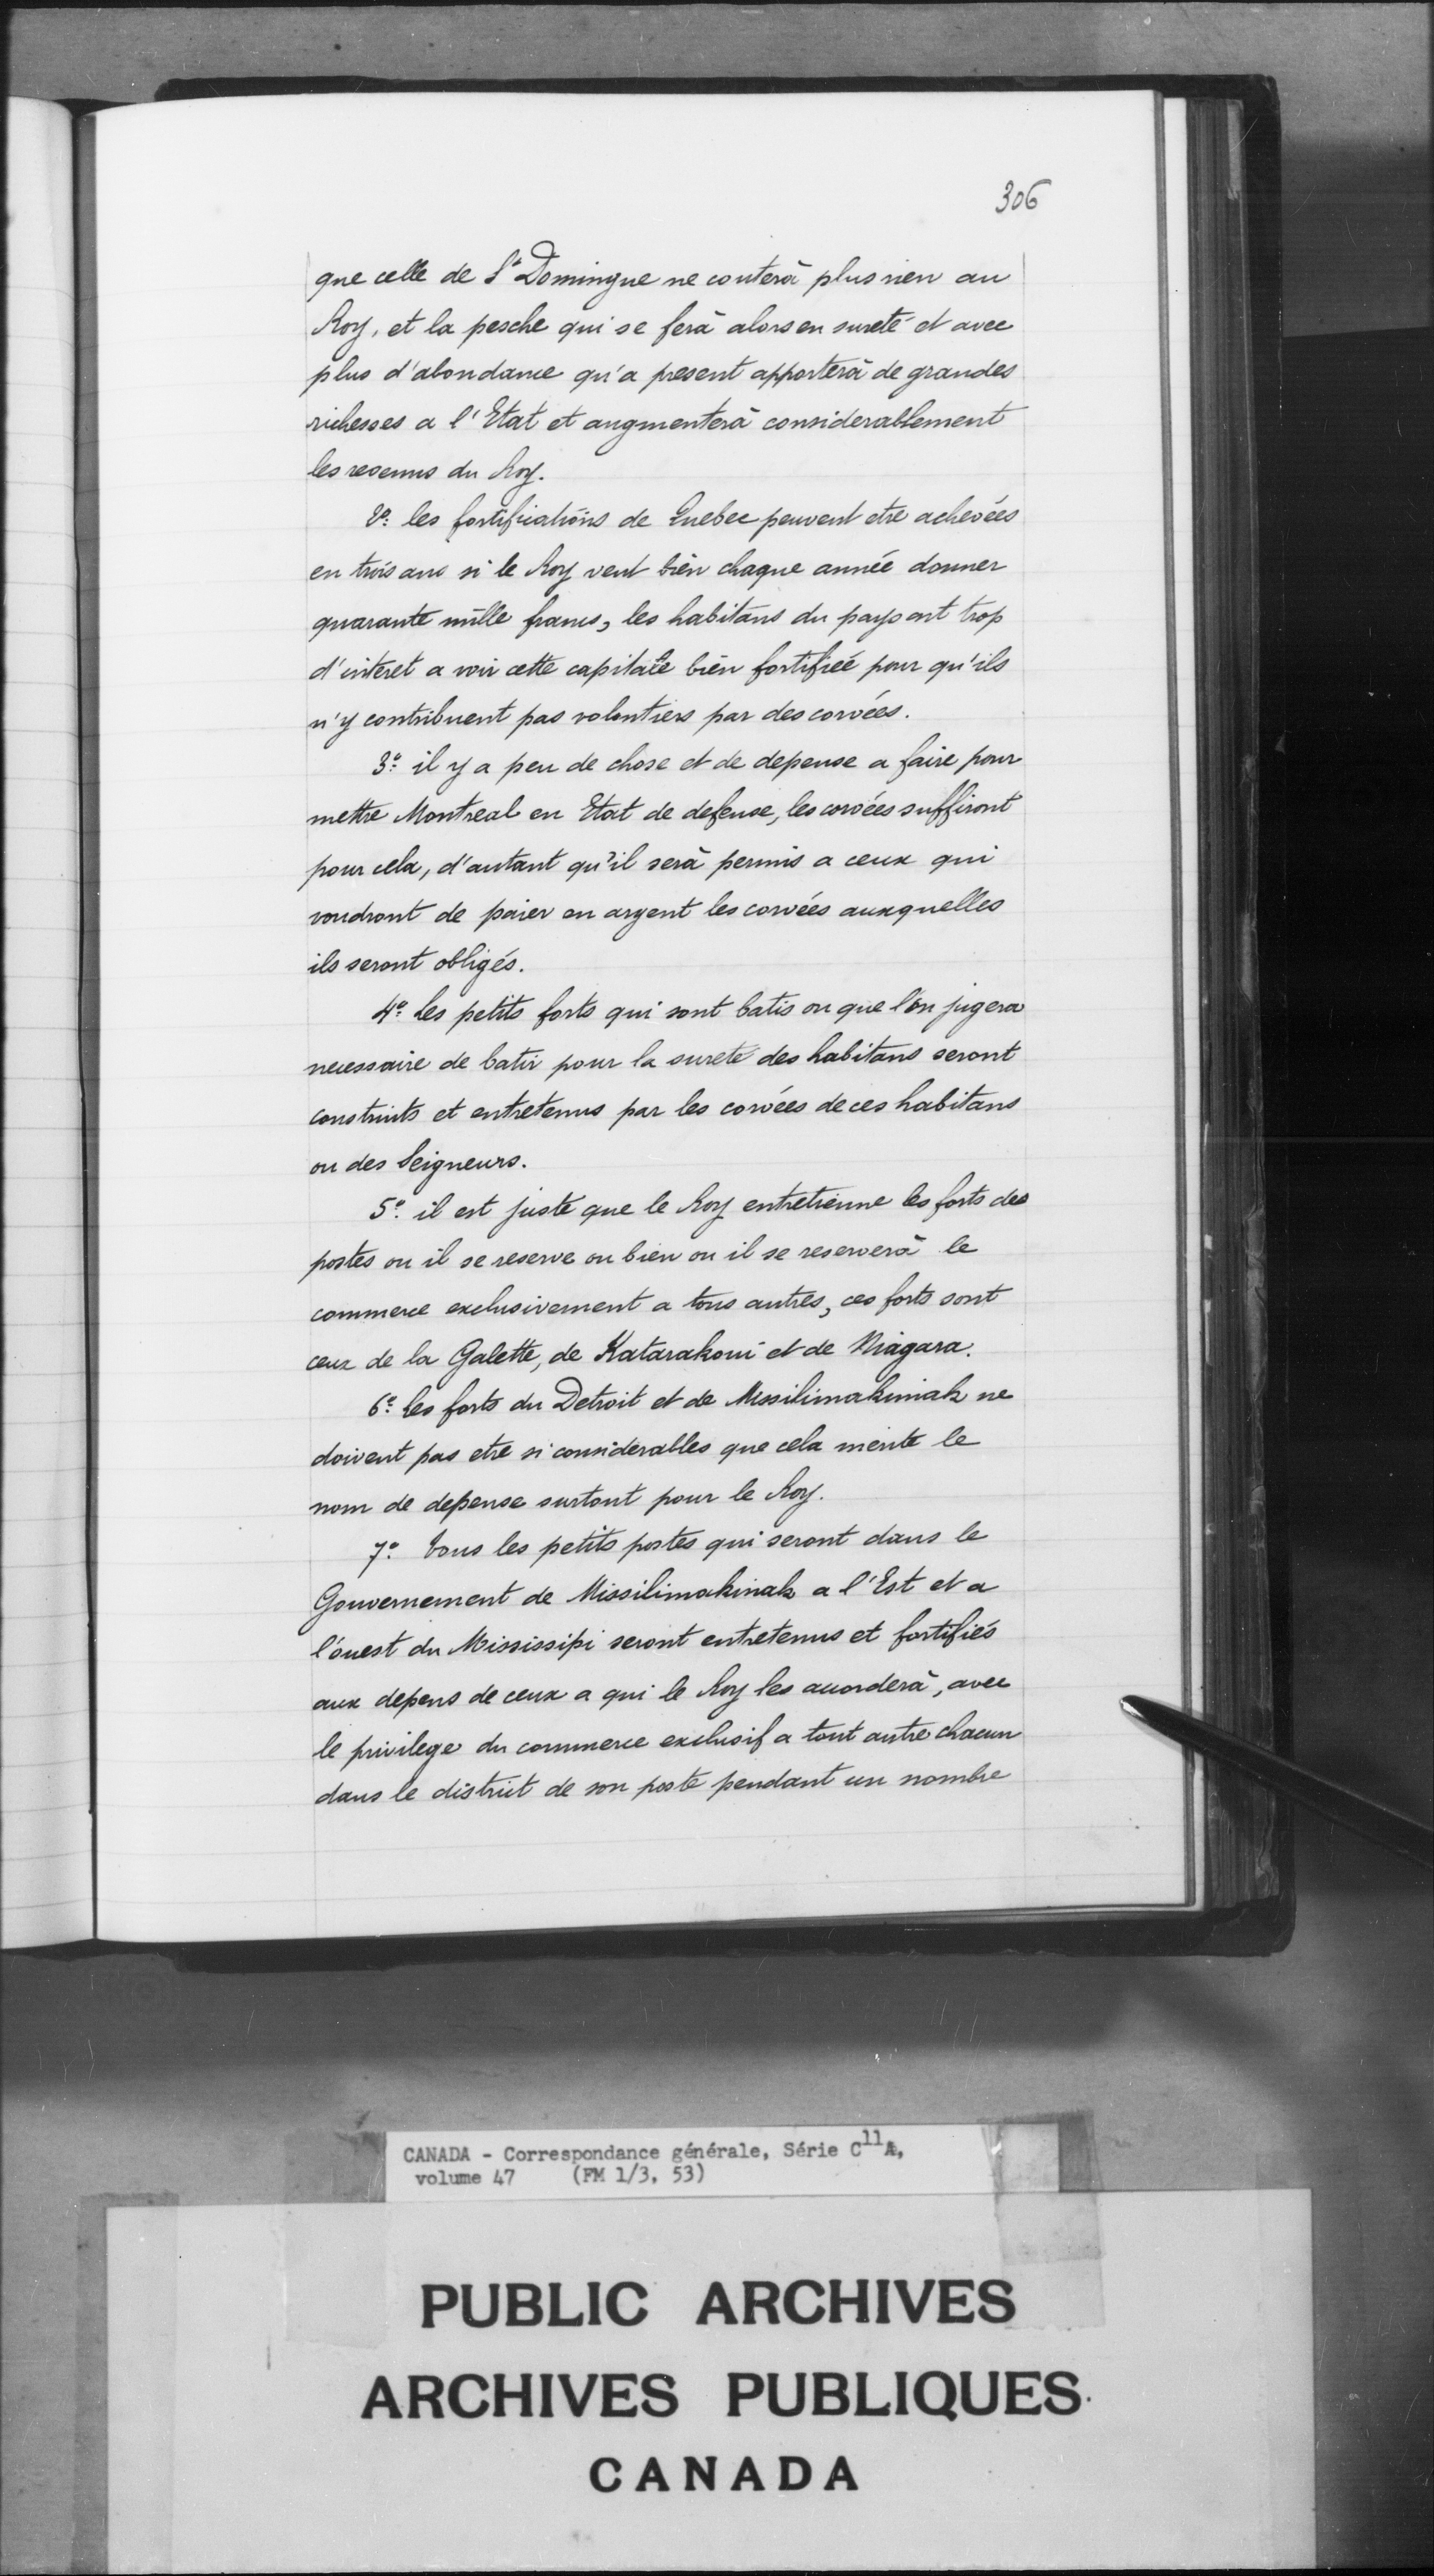 306
que celle de St Domingue ne couterà plus rien au
Roy, et la pesche qui se ferà alors en sureté et avec
plus d'abondance qu'a present apporterà de grandes
richesses a l'Etat et augmenterà considerablement
les revenus du Roy.
2º. les fortifications de Quebec peuvent etre achevées
en trois ans si le Roy veut bien chaque année donner
quarante mille francs, les habitans du pays ont trop
d'interet a voir cette capitale bien fortifiée pour qu'ils
n'y contribuent pas volontiers par des corvées.
3º. il y a peu de chose et de depense a faire pour
mettre Montreal en Etat de defense, les corvées suffiront
pour cela, d'autant qu'il serà permis a ceux qui
voudront de paier en argent les corvées auxquelles
ils seront obligés.
4º. Les petits forts qui sont batis ou que l'on jugera
necessaire de batir pour la sureté des habitans seront
construits et entretenus par les corvées de ces habitans
ou des Seigneurs.
5º. il est juste que le Roy entretienne les forts des
postes ou il se reserve ou bien ou il se reserverà le
commerce exclusivement a tous autres, ces forts sont
ceux de la Galette, de Katarakoui et de Niagara.
6º. Les forts du Detroit et de Missilimakiniak ne
doivent pas etre si considerables que cela merite le
nom de depense surtout pour le Roy.
7º. Tous les petits postes qui seront dans le
Gouvernement de Missilimakinak a l'Est et a
l'ouest du Mississipi seront entretenus et fortifiés
aux depens de ceux a qui le Roy les accorderà, avec
le privilege du commerce exclusif a tout autre chacun
dans le district de son poste pendant un nombre
CANADA - Correspondance générale, Série C11A,
volume 47 (FM 1/3, 53)
PUBLIC ARCHIVES
ARCHIVES PUBLIQUES
CANADA